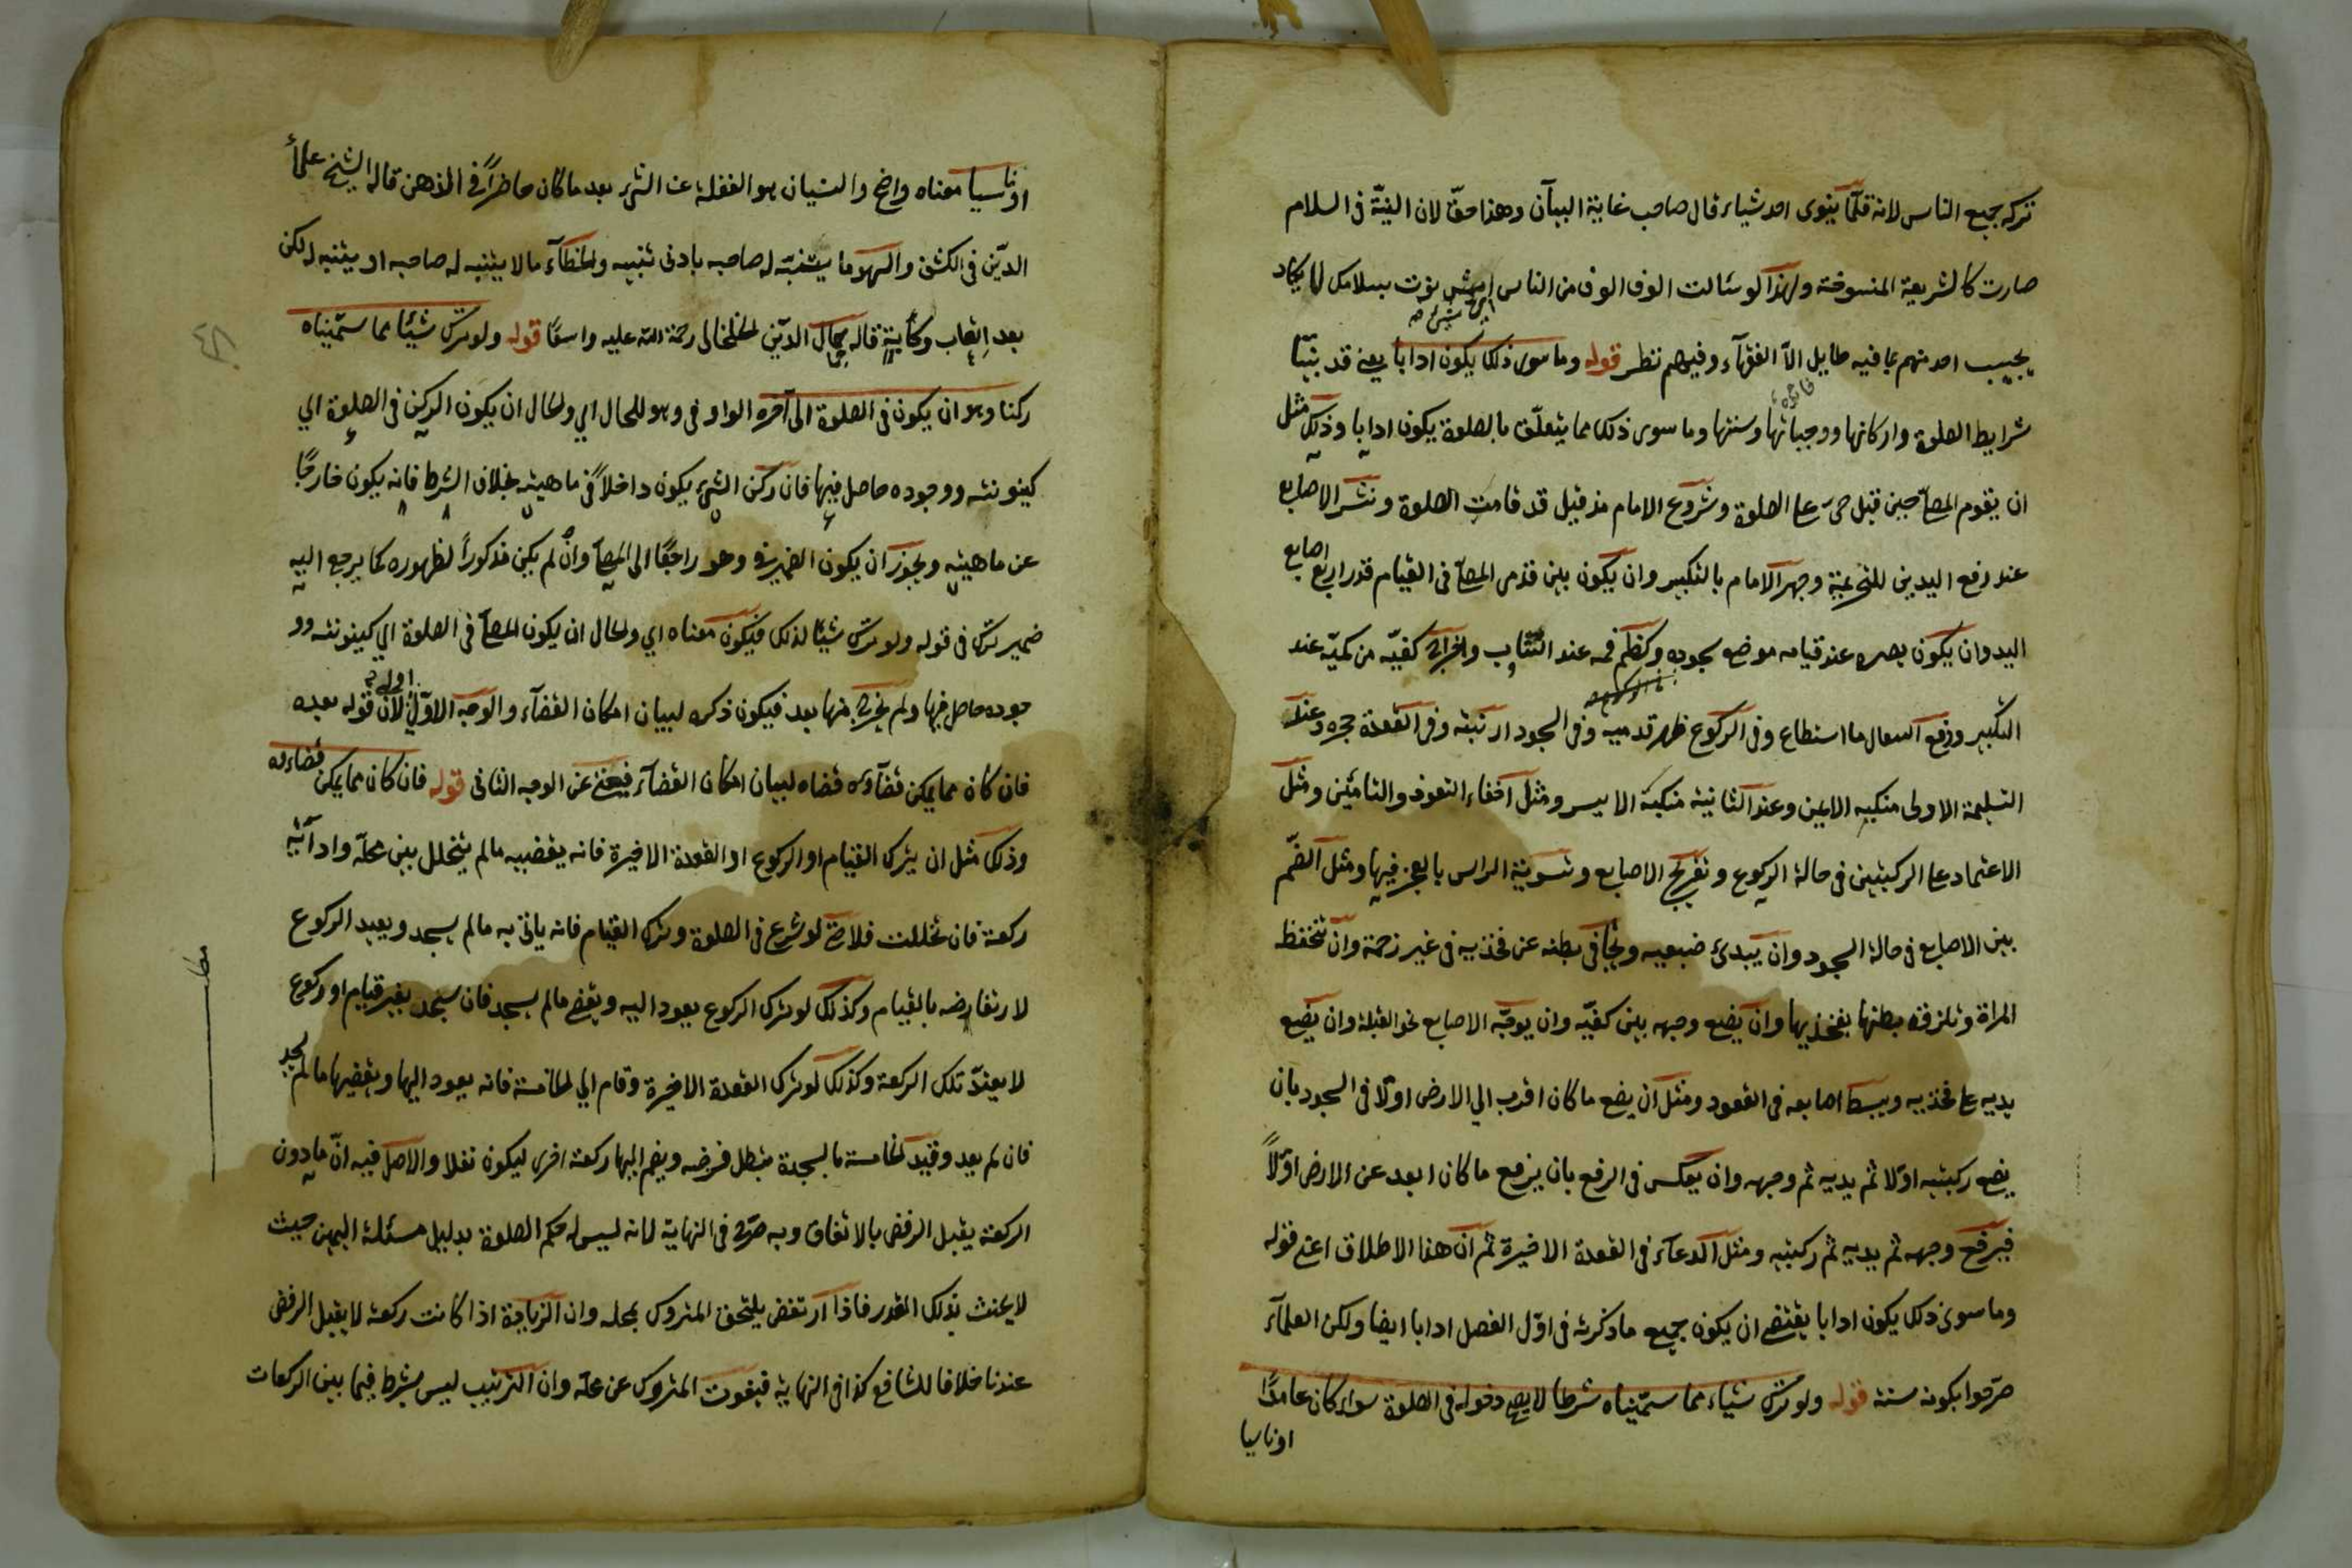 تركه جميع الناس لانه قلّما ينوى احد شياء قال صاحب غاية البيآن وهذا حقّ لان النيّة فى السلام
صارت كالشريعة المنسوخة ولهذا لوسئالت الوف الوف من الناس ايش نويت بسلامك لا يكاد
ايّ شئ صح
يجيب احد منهم بما فيه طايل الاّ الفقهآء وفيهم نظر قوله وما سوى ذلك يكون ادابا يعنے قد بيّنّا
شرايط الصلوة واركانها وواجباتها وسننها وما سوى ذلك مما يتعلّق بالصلوة يكون ادابا وذلك مثل
ان يقوم المصلّے حين قيل حىّ على الصلوة وشروع الامام مذ قيل قد قامت الصلوة ونشر الاصابع
عند رفع اليدين للتحريمة وجهر الامام بالتكبير وان يكون بين قدمى المصلّے فى القيام قدر اربع اصابع
اليد وان يكون بصره عند قيامه موضع سجوده وكظم فمه عند التثاءب واخراج كفيّه من كميّه عند
التكبير ودفع السعال ما استطاع وفى الركوع ظهر قدميه وفى السجود ارنبته وفى القعدة حجره وعند
التسليمة الاولى منكبه الايمن وعند الثانية منكبه الايسر ومثل اخفاء التعوذ والتامين ومثل
الاعتماد على الركبتين فى حالة الركوع وتفريج الاصابع وتسوية الراس بالعجز فيها ومثل الضّم
بين الاصابع فى حالة السجود وان يبدئ ضبعيه ويجافى بطنه عن فخذيه فى غير زحمة وان تنخفظ
المراة وتلزق بطنها بفخذيها وان يضع وجهه بين كفيّه وان يوجّه الاصابع نحو القبلة وان يضع
يديه على فخذيه ويبسط اصابعه فى القعود ومثل ان يضع ما كان اقرب الي الارض اولا فى السجود بان
يضع ركبتيه اوّلا ثم يديه ثم وجهه وان يعكس فى الرفع بان يرفع ما كان ابعد عن الارض اوّلاً
فيرفع وجهه ثم يديه ثم ركبتيه ومثل الدعآء فى القعدة الاخيرة ثم ان هذا الاطلاق اعنے قوله
وما سوى ذلك يكون ادابا يقتضے ان يكون جميع ما ذكرته فى اوّل الفصل ادابا ايضا ولكن العلمآء
صرّحوا بكونه سنة قوله ولو ترك شياء مما سمّيناه شرطا لا يصح دخوله فى الصلوة سواء كان عامدًا
اوناسيا
اوناسيا معناه واضح والنسيان هو الغفلة عن الشئ بعد ما كان حاضراً فى الذهن قاله الشيخ علاء
الدّين فى الكشف والسهو ما يتنبّه له صاحبه بادنى تنبيه والخطآء ما لا يتنبه له صاحبه او يتنبه له لكن
بعد اتعاب وكأبة قاله جمال الدّين الخلخالى رحمة الله عليه واسعًا قوله ولو ترك شيئًا مما سمّيناه
ركنا وهو ان يكون فى الصلوة الى آخره الواو فى وهو للحال اي والحال ان يكون الركن فى الصلوة اي
كينونته ووجوده حاصل فيها فان ركن الشئ يكون داخلاً فى ماهيته بخلاف الشرط فانه يكون خارجًا
عن ماهيته ويجوز ان يكون الضمير فى وهو راجعًا الى المصلّے وان لم يكن مذكوراً لظهوره كما يرجع اليه
ضمير ترك فى قوله ولو ترك شيئًا لذلك فيكون معناه اي والحال ان يكون المصلّے فى الصلوة اي كينونته وو
جوده حاصل فيها ولم يخرج منها بعد فيكون ذكره لبيان امكان القضآء والوجه الاوّل اولى لان قوله بعده
فان كان مما يمكن قضآؤه قضاه لبيان امكان القضآء فيغنے عن الوجه الثانى قوله فان كان مما يمكن قضاءه
وذلك مثل ان يترك القيام او الركوع او القعدة الاخيرة فانه يقضيه مالم يتخلل بين محلّه وادآئه
ركعة فان تخللت فلا حتّے لو شرع فى الصلوة وترك القيام فانه ياتى به مالم يسجد ويعيد الركوع
لارتفاضه بالقيام وكذلك لو ترك الركوع يعود اليه ويقضے مالم يسجد فان سجد بغير قيام او ركوع
لا يعتدّ تلك الركعة وكذلك لو ترك القعدة الاخيرة وقام الي الخامسة فانه يعود اليها ويقضيها مالم يسجد
فان لم يعد وقيد الخامسة بالسجدة يبطل فرضه ويضم اليها ركعة اخرى ليكون نفلا والاصل فيه انّ مادون
الركعة يقبل الرفض بالاتفاق وبه صرّح فى النهاية لانه ليس له حكم الصلوة بدليل مسئلة اليمين حيث
لا يحنث بذلك القدر فاذا ارتفض يلتحق المتروك بمحله وان الزيادة اذا كانت ركعة لا يقبل الرفض
عندنا خلافا للشافعے كذا فى النهاية فيفوت المتروك عن محلّه وان الترتيب ليس بشرط فيما بين الركعات